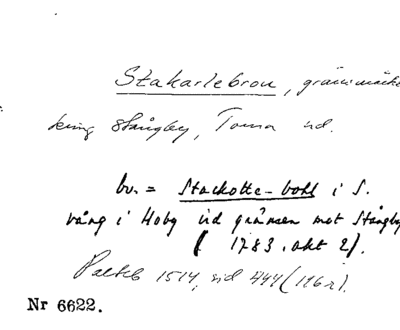 Stakarlebron, gränsmärke
kring Stångby, Torna hd.
bv. = Stackotte-bohl i S.
vång i Hoby vid gränsen mot Stångby
( 1783, akt 2).
Palteb 1514, sid 444 (116r).
Nr 6622.